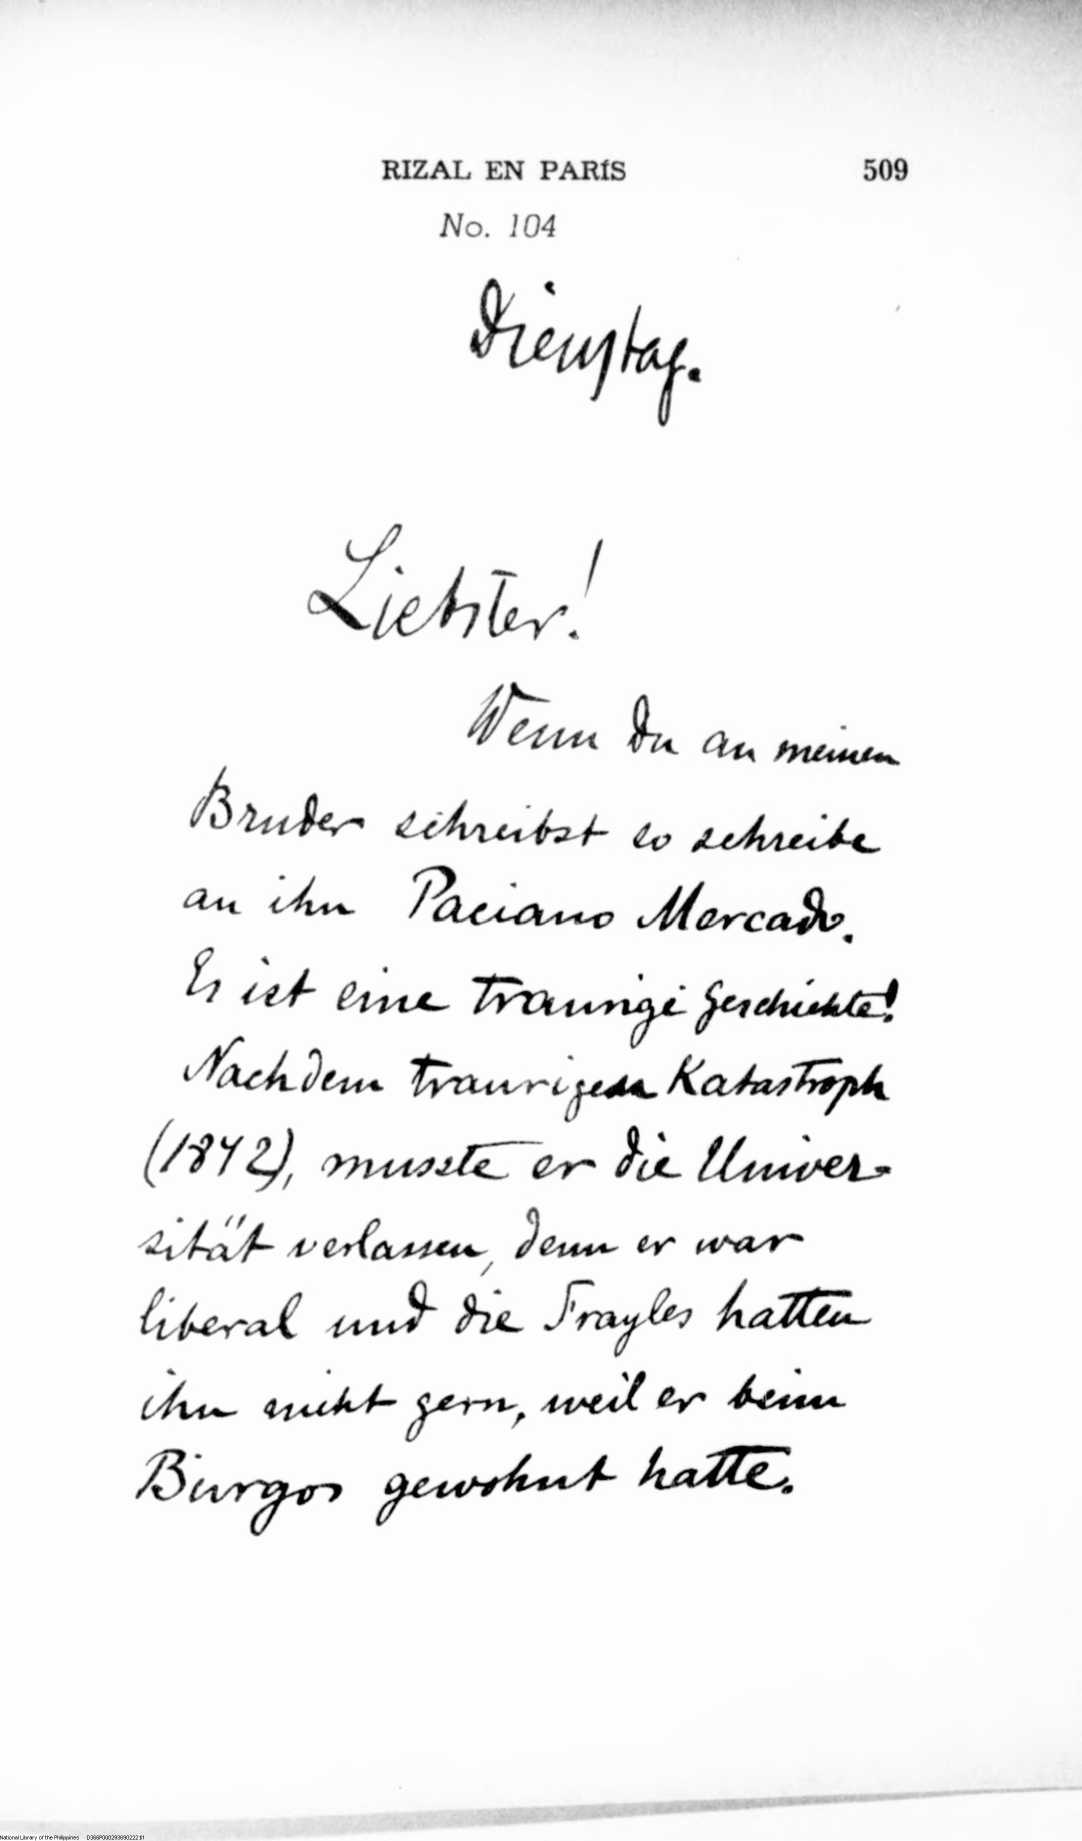 RIZAL EN PARÍS 509
No. 104
Dienstag.
Liebster!
Wenn Du an meinen
Bruder schreibst so schreibe
an ihn Paciano Mercado.
Es ist eine traurige Geschichte!
Nach dem traurigen Katastroph
(1872), musste er die Univer-
sität verlassen, denn er war
liberal und die Frayles hatten
ihn nicht gern, weil er beim
Burgos gewohnt hatte.
National Library of the Philippines